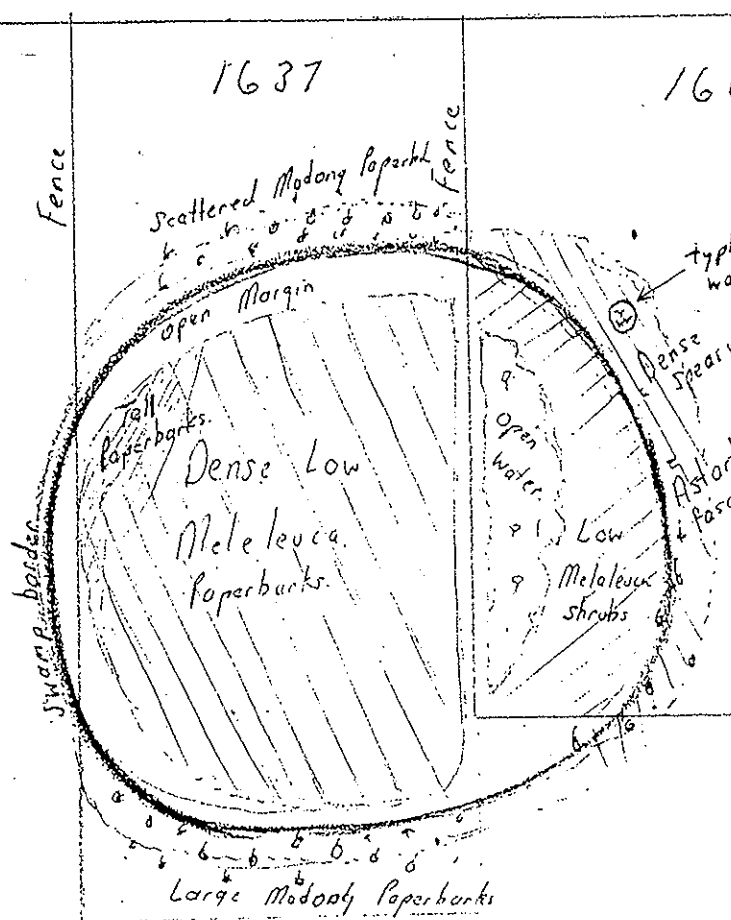 1637
16
Fence
Fence
Scattered Modong Paperbk
Open Margin
typh
wa
Dense
spear
Tall
Paperbarks.
Dense Low
Meleleuca
Paperbarks.
Open
Water
Low
Melaleuca
shrubs
Astar
fasc
Swamp border
Large Modong Paperbarks